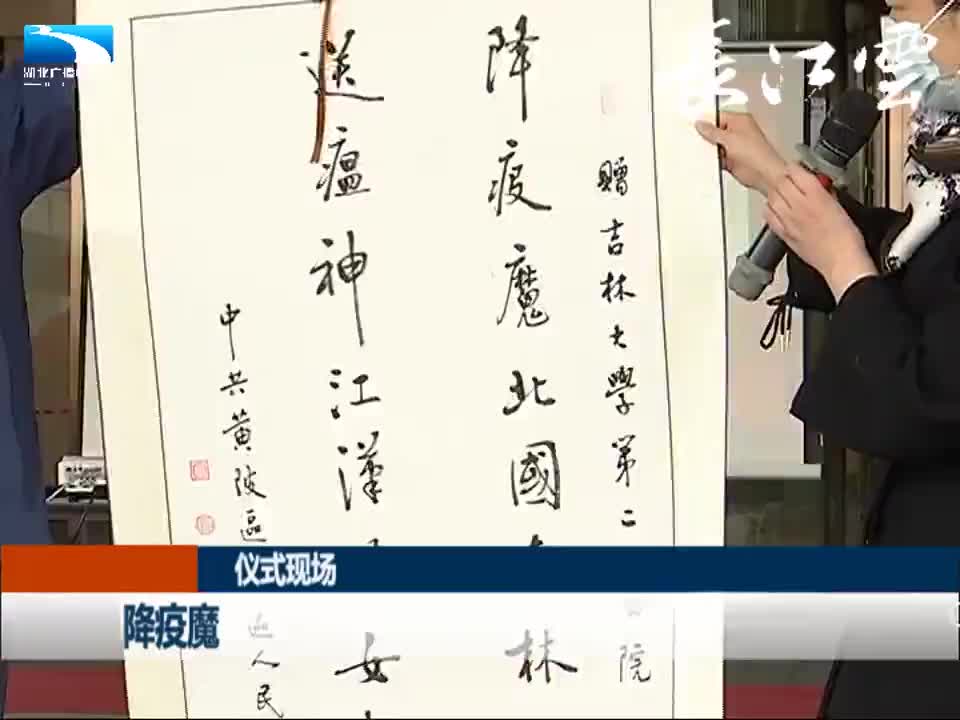 湖北广播
長江雲
贈吉林大學第二
院
降疫魔北國
林
送瘟神江漢
女
中共黄陂區
人民
仪式现场
降疫魔